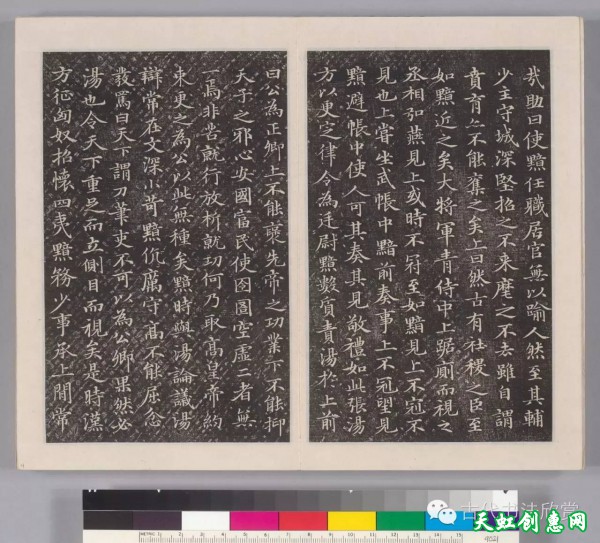 哉助曰使黯任職居官無以踰人然至其輔
少主守城深堅招之不来麾之不去雖自謂
賁育亦不能奪之矣上曰然古有社稷之臣至
如黯近之矣大將軍青侍中上踞廁而視之
丞相弘燕見上或時不冠至如黯見上不冠不
見也上嘗坐武帳中黯前奏事上不冠望見
黯避帳中使人可其奏其見敬禮如此張湯
方以更定律令為廷尉黯數質責湯於上前
曰公為正卿上不能襃先帝之功業下不能抑
天下之邪心安國富民使囹圄空虛二者無
一焉非苦就行放析就功何乃取高皇帝約
束更之為公以此無種矣黯時與湯論議湯
辯常在文深小苛黯伉厲守高不能屈忿
發罵曰天下謂刀筆吏不可以為公卿果然必
湯也令天下重足而立側目而視矣是時漢
方征匈奴招懷四夷黯務少事承上間常
古代书法欣赏
天虹创惠网